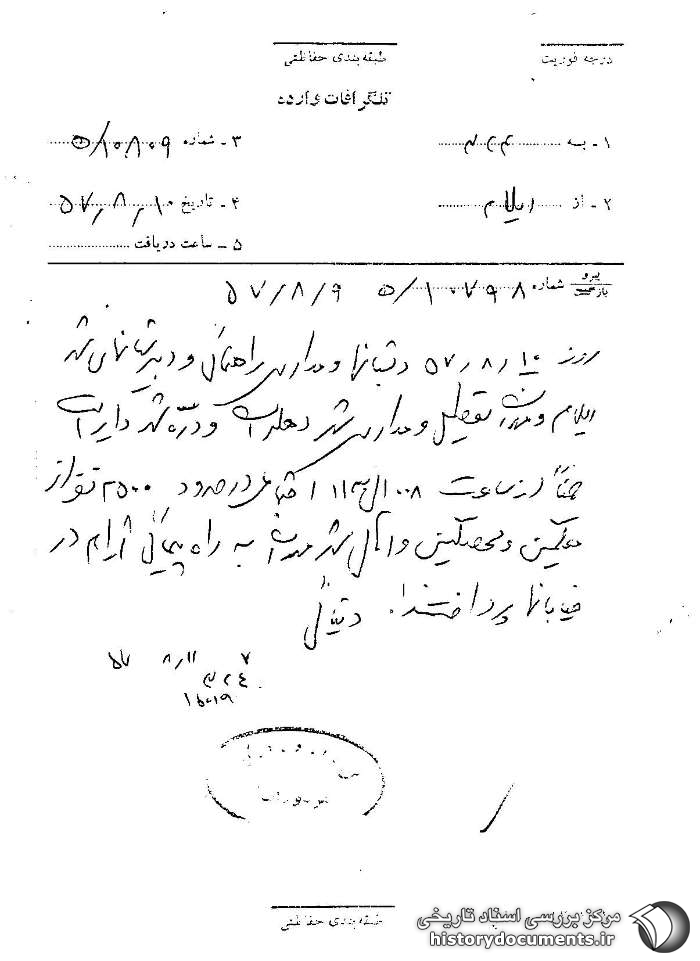 درجه فوریت
طبقه‌بندی حفاظتی
تلگرافات وارده
۱ - به ۳۴۲
۳ - شماره ۵/۱۰۸۰۹
۲ - از ایلام
۴ - تاریخ ۵۷/۸/۱۰
۵ - ساعت دریافت
پیرو
شماره ۵/۱۰۷۹۸ ۵۷/۸/۹
روز ۵۷/۸/۱۰ دبستانها و مدارس راهنمائی و دبیرستانهای شهر
ایلام و مهران تعطیل و مدارس شهر دهلران و دره شهر دایر است
ضمناً از ساعت ۰۰۸ الی ۱۱ اجتماعی در حدود ۲۵۰۰ نفر از
معلمین و محصلین و اهالی شهر مهران به راه پیمائی آرام در
خیابانها پرداختند.
۵۷ ۸/۱۱ ۷
طبقه‌بندی حفاظتی
مرکز بررسی اسناد تاریخی
historydocuments.ir